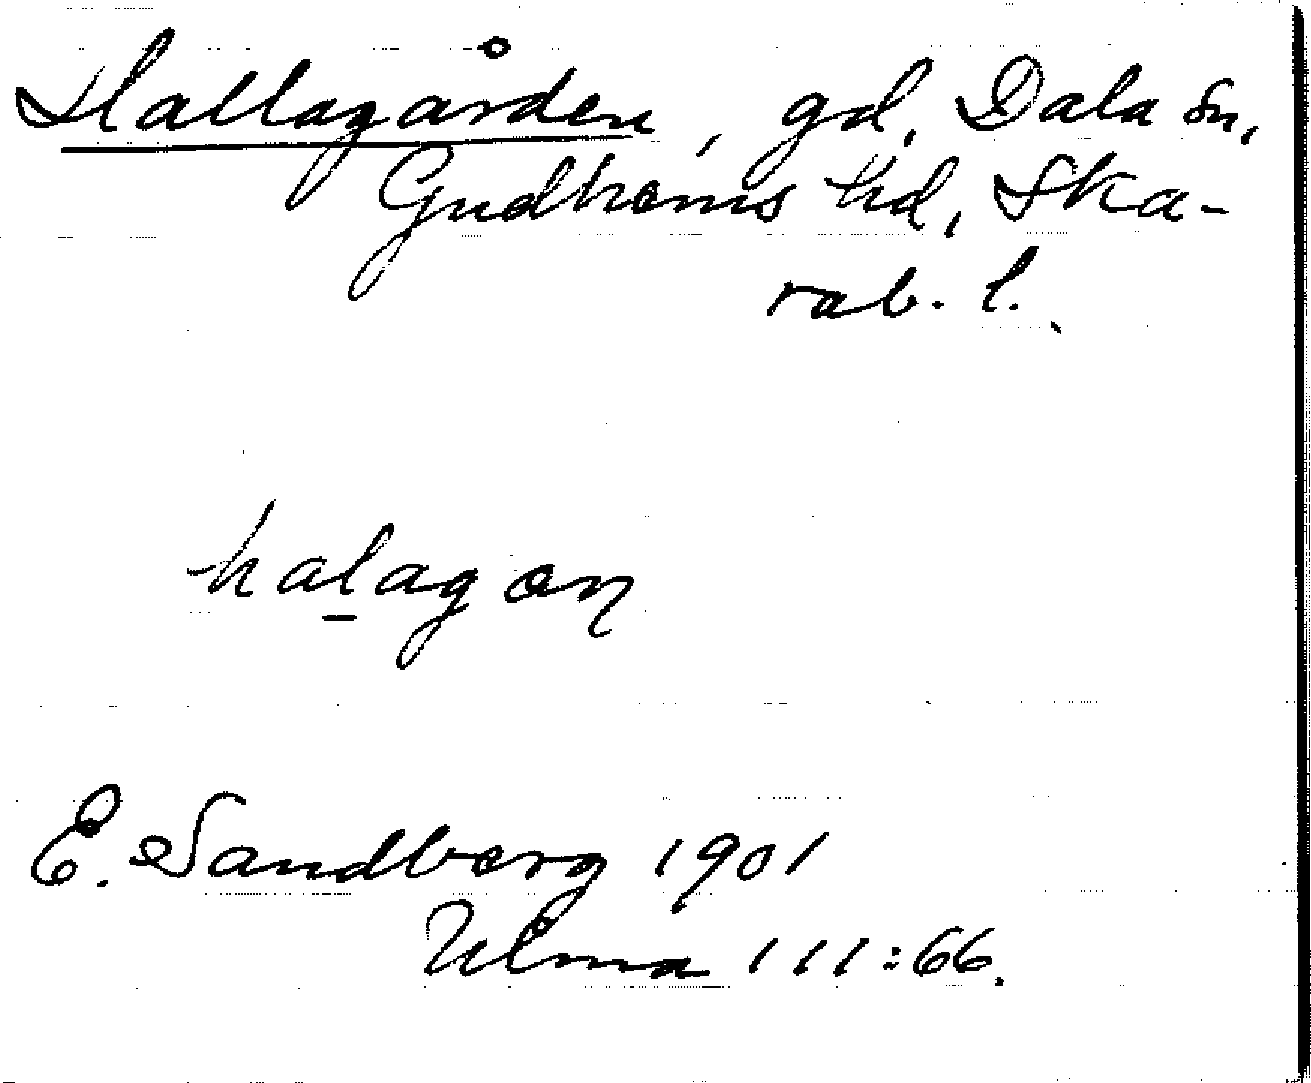 Hallagården, gd, Dala sn,
Gudhems hd, Ska-
rab. l.
halagon
E. Sandberg 1901
Ulma 111:66.